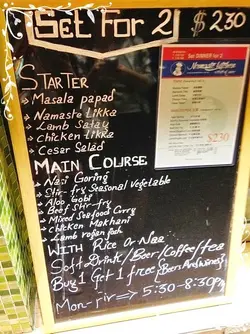 Set For 2
$230
STARTER
Masala papad
Namaste tikka
Lamb Satay
Chicken tikka
Cesar Salad
MAIN COURSE
Nasi Goring
Stir-fry Seasonal Vegetable
Aloo Gobi
Beef Stir-fry
Mixed Seafood Curry
Chicken Makhani
Lamb rogan josh
WITH Rice Or Naa
Soft Drink/Beer/Coffee/tea
Buy 1 Get 1 free (Beers And wines)
Mon-Fir => 5:30-8:30P
Set DINNER for 2
$230